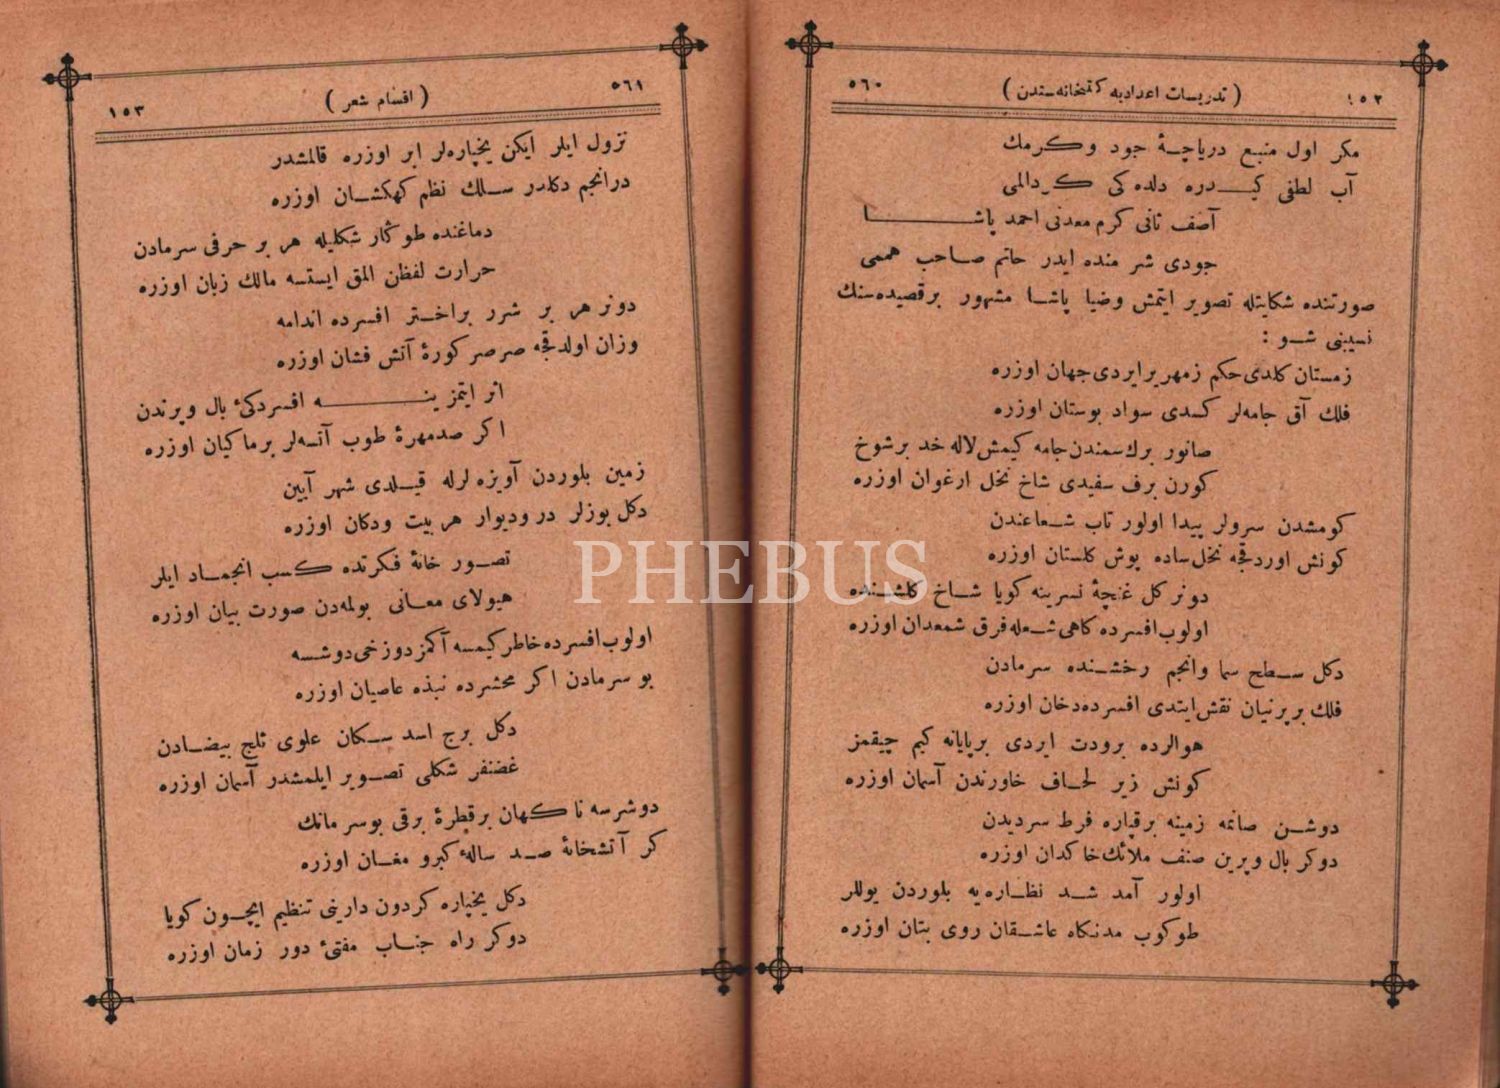 ١٥٢ ( تدريسات اعداديه كتبخانه‌سندن ) ٥٦٠
مكر اول منبع درياچۀ جود وكرمك
آب لطفی كيدره دلده كی كردالمی
آصف ثانی كرم معدنی احمد پاشا
جودی شرمنده ايدر حاتم صاحب هممی
صورتنده شكايتله تصوير ايتمش وضيا پاشا مشهور برقصيده‌سنك
نسيبنی شو :
زمستان كلدی حكم زمهرير ايردی جهان اوزره
فلك آق جامه‌لر كسدی سواد بوستان اوزره
صانور برك سمندن جامه كيمش لاله خد برشوخ
كورن برف سفيدی شاخ نخل ارغوان اوزره
كومشدن سرولر پيدا اولور تاب شعاعندن
كونش اوردقجه نخل ساده پوش كلستان اوزره
دونر كل غنچۀ نسرينه كويا شاخ كلشنده
اولوب افسرده كاهی شعله فرق شمعدان اوزره
دكل سطح سما وانجم رخشنده سرمادن
فلك بر پرنيان نقش ايتدی افسرده دخان اوزره
هوالرده برودت ايردی برپايانه كيم چيقمز
كونش زير لحاف خاورندن آسمان اوزره
دوشن صانمه زمينه برقپاره فرط سرديدن
دوكر بال وپرين صنف ملائك خاكدان اوزره
اولور آمد شد نظاره‌يه بلوردن يوللر
طوكوب مدنكاه عاشقان روی بتان اوزره
٥٦١ ( اقسام شعر ) ١٥٣
نزول ايلر ايكن يخپاره‌لر ابر اوزره قالمشدر
درانجم دكلدر سلك نظم كهكشان اوزره
دماغنده طوڭار شكليله هر بر حرفی سرمادن
حرارت لفظن المق ايستسه مالك زبان اوزره
دونر هر بر شرر براختر افسرده اندامه
وزان اولدقجه صرصر كورۀ آتش فشان اوزره
اثر ايتمز ينه افسردكئ بال وپرندن
اكر صدمهرۀ طوب آتسه‌لر برماكيان اوزره
زمين بلوردن آويزه لرله قيلدی شهر آيين
دكل بوزلر در وديوار هر بيت ودكان اوزره
تصور خانۀ فكرتده كسب انجماد ايلر
هيولای معانی بولمه‌دن صورت بيان اوزره
اولوب افسرده خاطر كيمسه آكمز دوزخی دوشسه
بو سرمادن اكر محشرده نبذه عاصيان اوزره
دكل برج اسد سكان علوی ثلج بيضادن
غضنفر شكلی تصوير ايلمشدر آسمان اوزره
دوشرسه ناكهان برقطرۀ برقی بوسرمانك
كر آتشخانۀ صد سالۀ كبرو مغان اوزره
دكل يخپاره كردون دارينی تنظيم ايچون كويا
دوكر راه جناب مفتئ دور زمان اوزره
PHEBUS